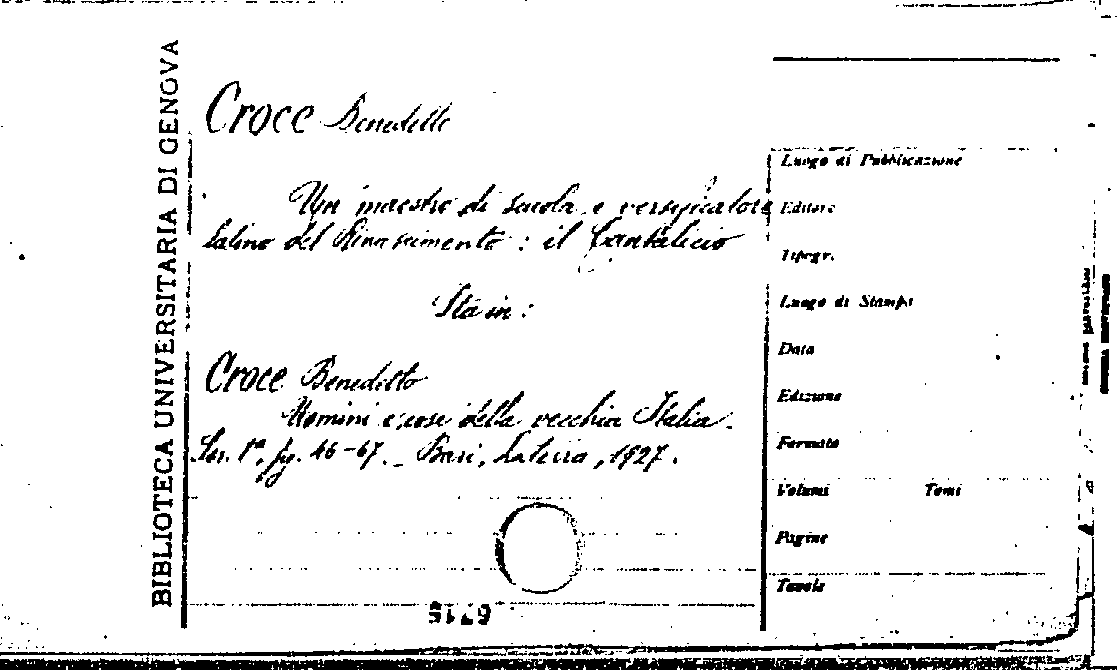 BIBLIOTECA UNIVERSITARIA DI GENOVA
Croce Benedetto
Un maestro di scuola e versificatore
latino del Rinascimento : il Cantalicio
Sta in :
Croce Benedetto
Uomini e cose della vecchia Italia.
Ser. 1ª, pg. 46-67. _ Bari, Laterza, 1927.
Luogo di Pubblicazione
Editore
Tipogr.
Luogo di Stampa
Data
Edizione
Formato
Volumi Tomi
Pagine
Tavole